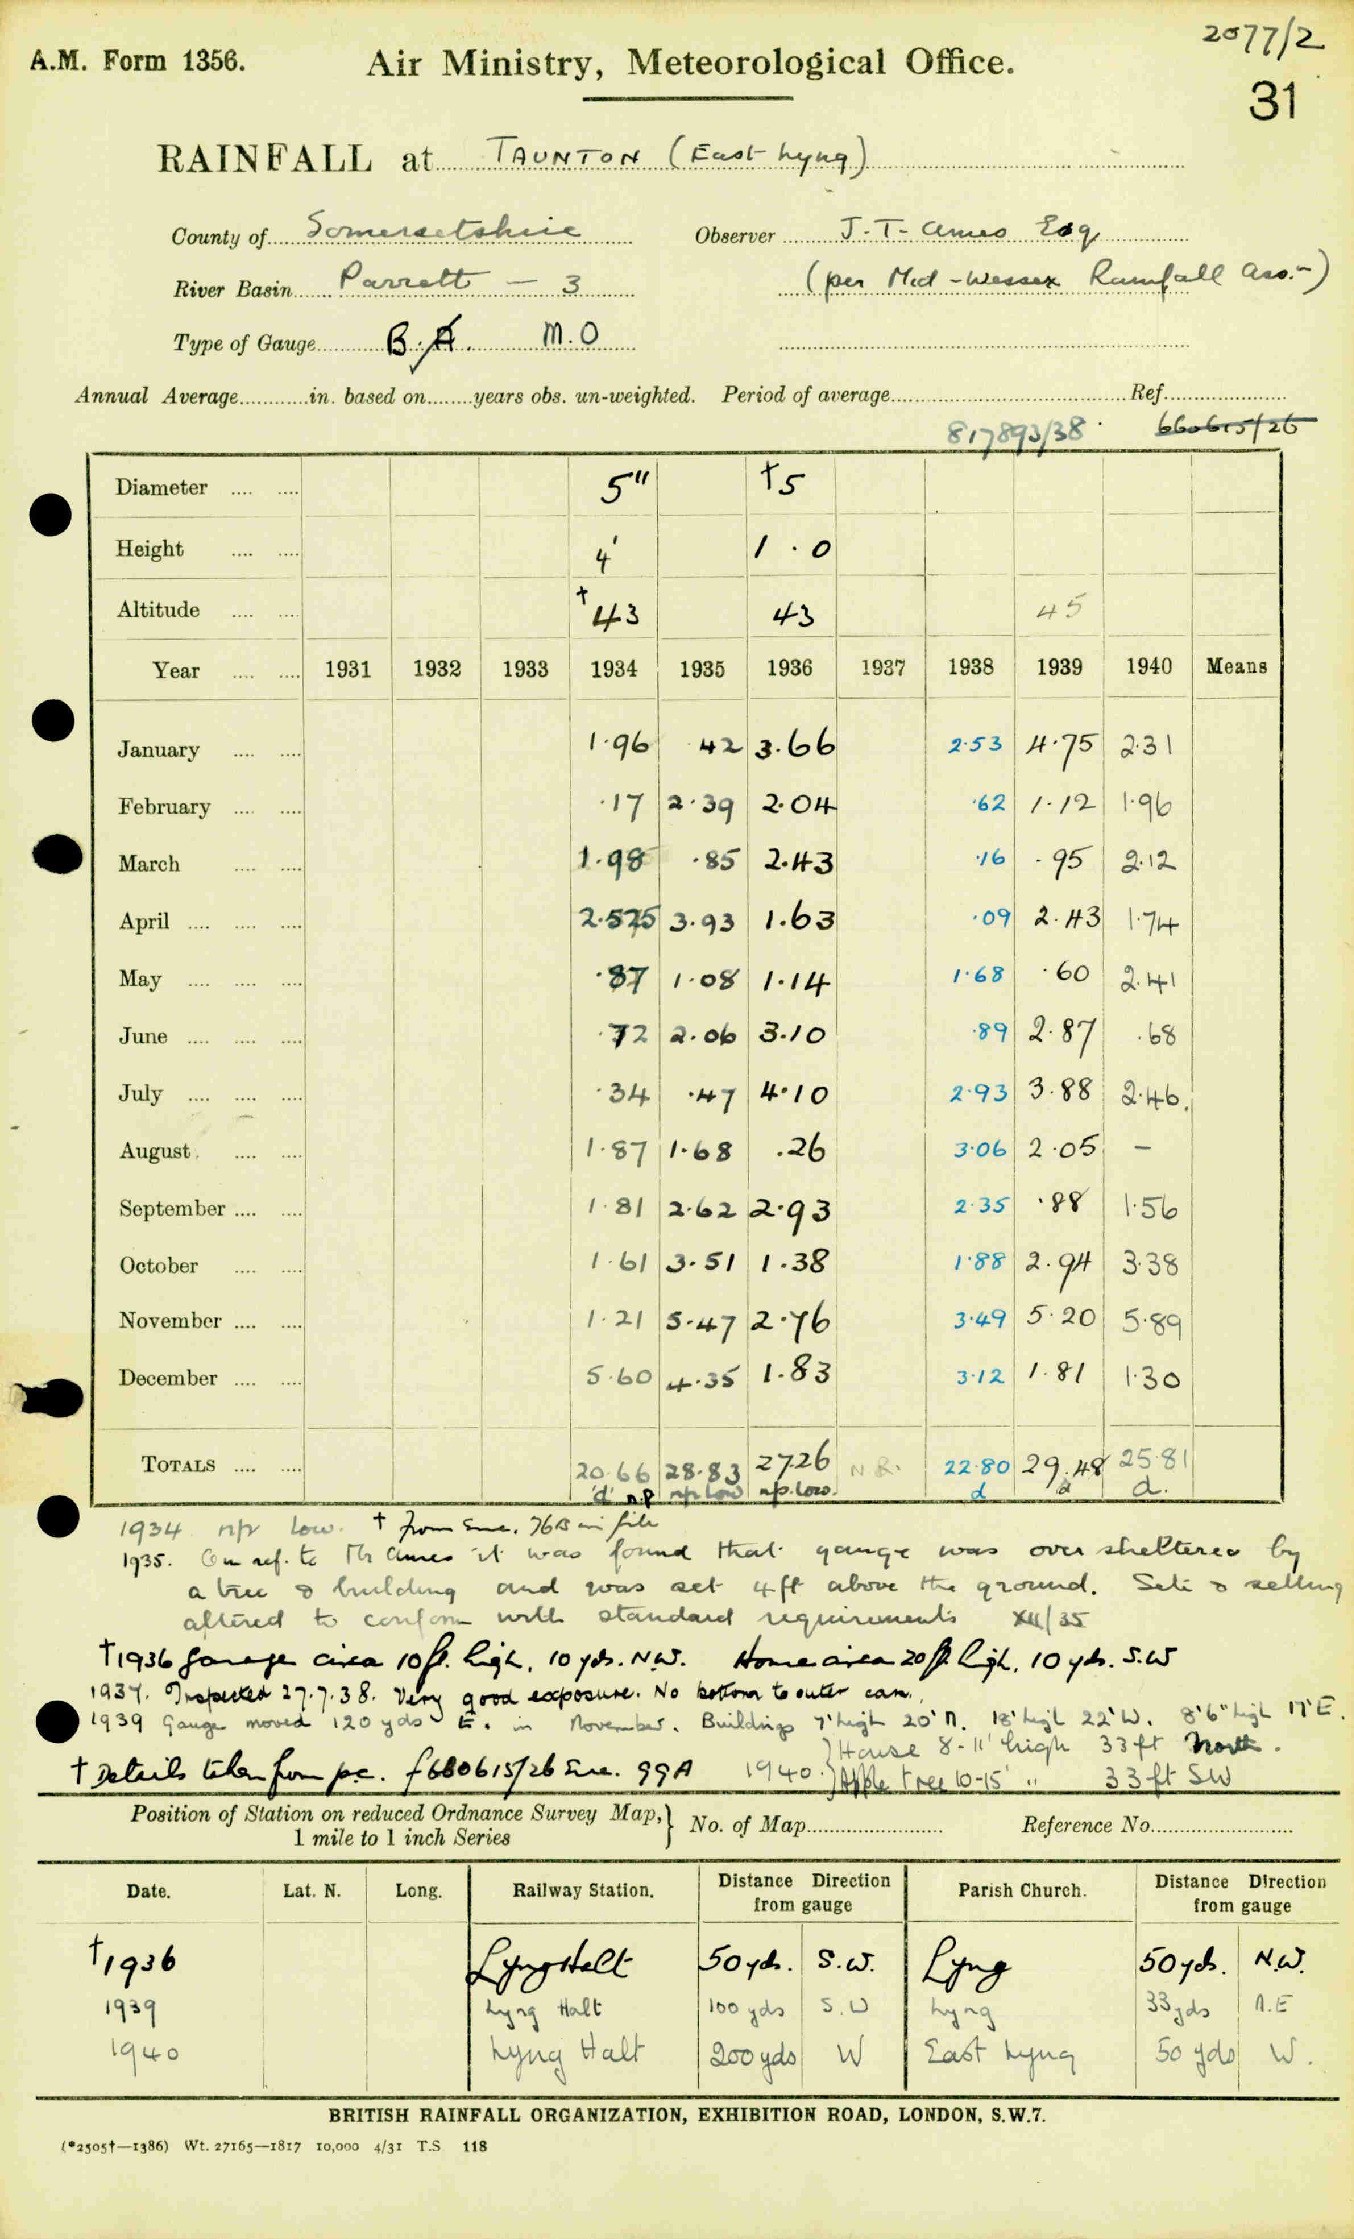 2077/2
A.M. Form 1356. Air Ministry, Meteorological Office.
31
RAINFALL at TAUNTON (East Lyng)
County of Somersetshire Observer J. T. Ames Esq
River Basin Parrett - 3 (per Mid-Wessex Rainfall Asso.-)
Type of Gauge B.A. M.O
Annual Average in. based on years obs. un-weighted. Period of average Ref.
817893/38 660615/26
Diameter 5" †5
Height 4' 1.0
Altitude †43 43 45
Year 1931 1932 1933 1934 1935 1936 1937 1938 1939 1940 Means
January 1.96 42 3.66 2.53 4.75 2.31
February .17 2.39 2.04 .62 1.12 1.96
March 1.98 .85 2.43 .16 .95 2.12
April 2.525 3.93 1.63 .09 2.43 1.74
May .87 1.08 1.14 1.68 .60 2.41
June .72 2.06 3.10 .89 2.87 .68
July .34 .47 4.10 2.93 3.88 2.46
August 1.87 1.68 .26 3.06 2.05 -
September 1.81 2.62 2.93 2.35 .88 1.56
October 1.61 3.51 1.38 1.88 2.94 3.38
November 1.21 5.47 2.76 3.49 5.20 5.89
December 5.60 4.35 1.83 3.12 1.81 1.30
TOTALS 20.66 28.83 27.26 N R. 22.80 29.48 25.81
'd' n.p np low np.low. d d d.
1934 n/p low. † from 76B in file
1935. On ref. to Mr Ames it was found that gauge was over sheltered by
a tree & building and was set 4ft above the ground. Site & setting
altered to conform with standard requirements XII/35
†1936 Garage area 10ft. high, 10 yds. N.W. Home area 20ft. high, 10 yds. S.W
1937. Inspected 27.7.38. Very good exposure. No bottom to outer can.
1939 Gauge moved 120 yds E. in November. Buildings 7' high 20' N. 18' high 22' W. 8'6" high 17' E.
1940. } House 8-11' high 33 ft North.
† Details taken from p.c. f660615/26 99A Apple tree 10-15' " 33 ft SW
Position of Station on reduced Ordnance Survey Map, } No. of Map Reference No.
1 mile to 1 inch Series
Date. Lat. N. Long. Railway Station. Distance Direction from gauge Parish Church. Distance Direction from gauge
†1936 Lyng Halt 50 yds. S.W. Lyng 50 yds. N.W.
1939 Lyng Halt 100 yds S.W Lyng 33 yds N.E
1940 Lyng Halt 200 yds W East Lyng 50 yds W.
BRITISH RAINFALL ORGANIZATION, EXHIBITION ROAD, LONDON, S.W.7.
(*2505†—1386) Wt. 27165—1817 10,000 4/31 T.S. 118